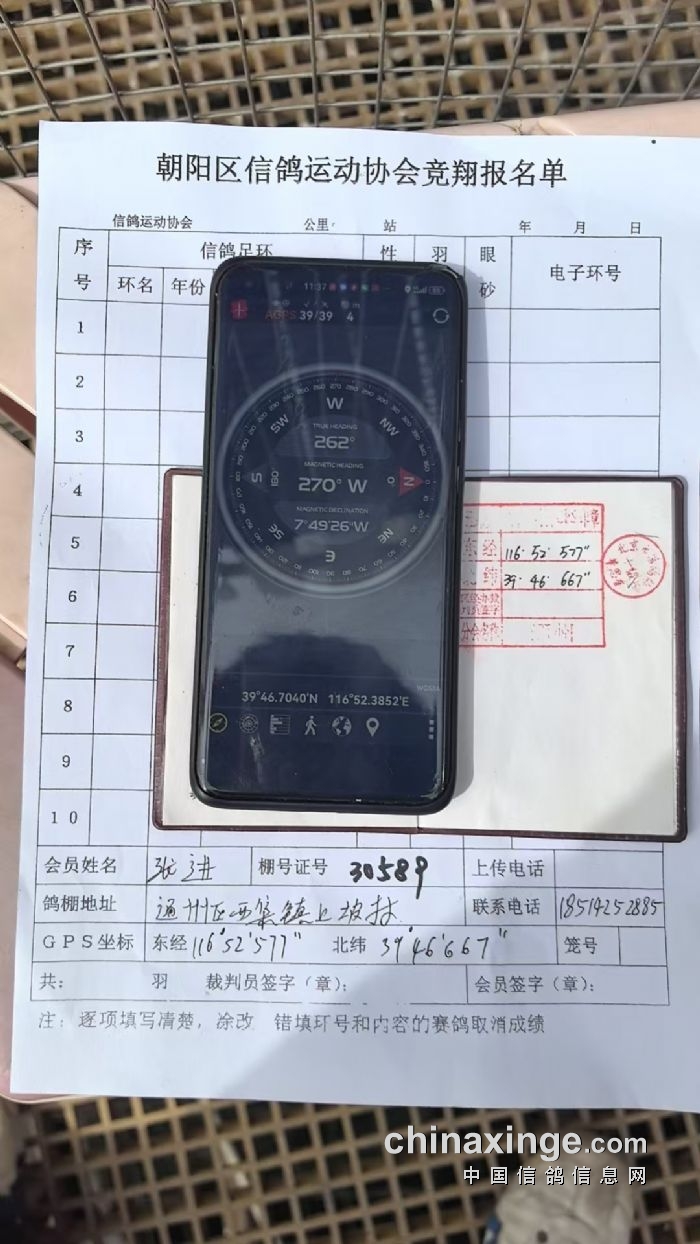 朝阳区信鸽运动协会竞翔报名单
信鸽运动协会 公里 站 年 月 日
序号 信鸽足环 性 羽 眼砂 电子环号
环名 年份
1
2
3
4
5
6
7
8
9
10
11:37
AGPS 39/39 4
W
SW NW
TRUE HEADING
262°
MAGNETIC HEADING
S 180 270° W 0 N
MAGNETIC DECLINATION
7°49'26"W
SE NE
E
39°46.7040'N 116°52.3852'E
东经 116°52'577"
北纬 39°46'667"
会员姓名 张进 棚号证号 30589 上传电话
鸽棚地址 通州区西集镇上坡村 联系电话 18514252885
GPS坐标 东经 116°52'577" 北纬 39°46'667" 笼号
共: 羽 裁判员签字(章): 会员签字(章):
注: 逐项填写清楚, 涂改 错填环号和内容的赛鸽取消成绩
chinaxinge.com
中国信鸽信息网